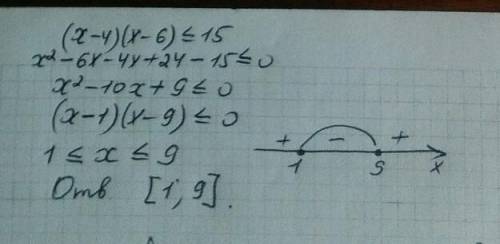 (x-4)(x-6) ≤ 15
x²-6x-4x+24-15 ≤ 0
x²-10x+9 ≤ 0
(x-1)(x-9) ≤ 0
+ - +
1 ≤ x ≤ 9
1 9 x
Отв [1; 9].